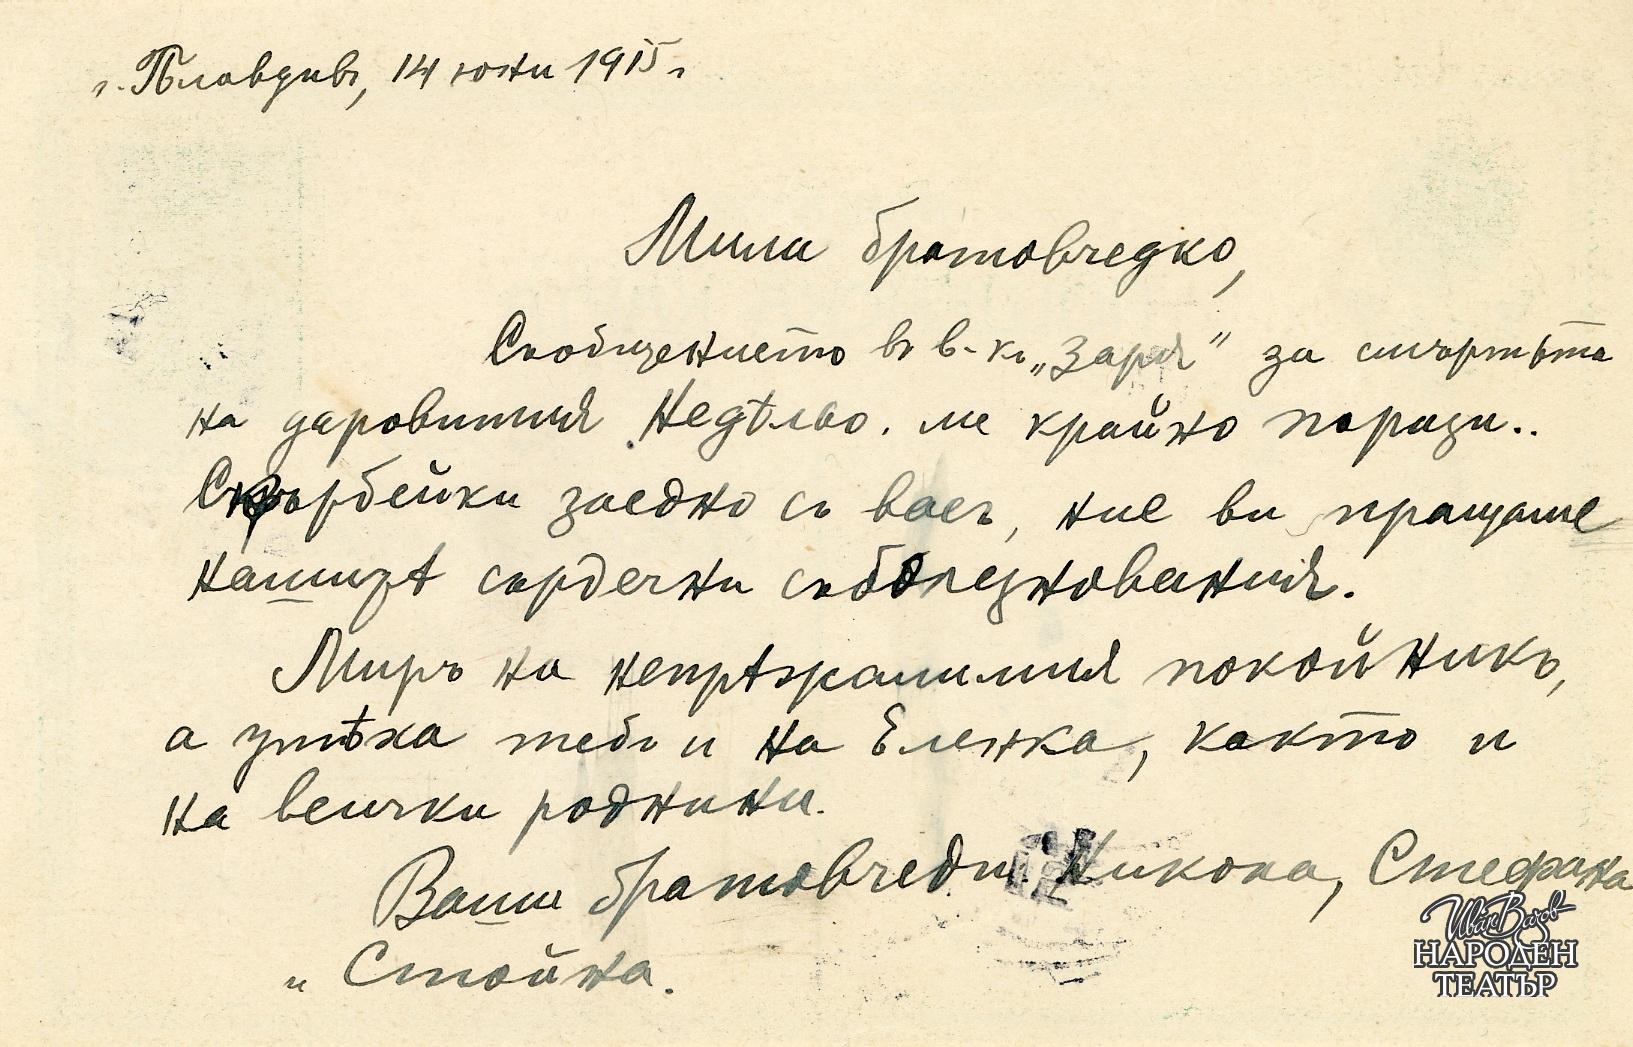 г. Пловдивъ, 14 юни 1915 г.
Мила братовчедко,
Съобщението въ в-къ „Заря" за смъртьта
на даровития Недѣльо. ме крайно порази..
Скърбейки заедно съ васъ, ние ви пращаме
нашитѣ сърдечни съболезнования.
Миръ на непрѣжалимия покойникъ,
а утѣха тебъ и на Еленка, както и
на всички роднини.
Ваши братовчеди: Никола, Стефана
и Стойна.
Иван Вазов
НАРОДЕН
ТЕАТЪР